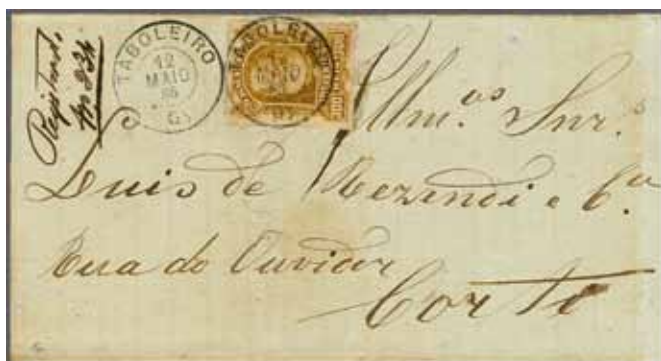 Registrado.
No 234
TABOLEIRO
12
MAIO
86
TABOLEIRO
MAIO
Illm.os Snr.s
Luis de Rezende e C.a
Rua do Ouvidor
Corte